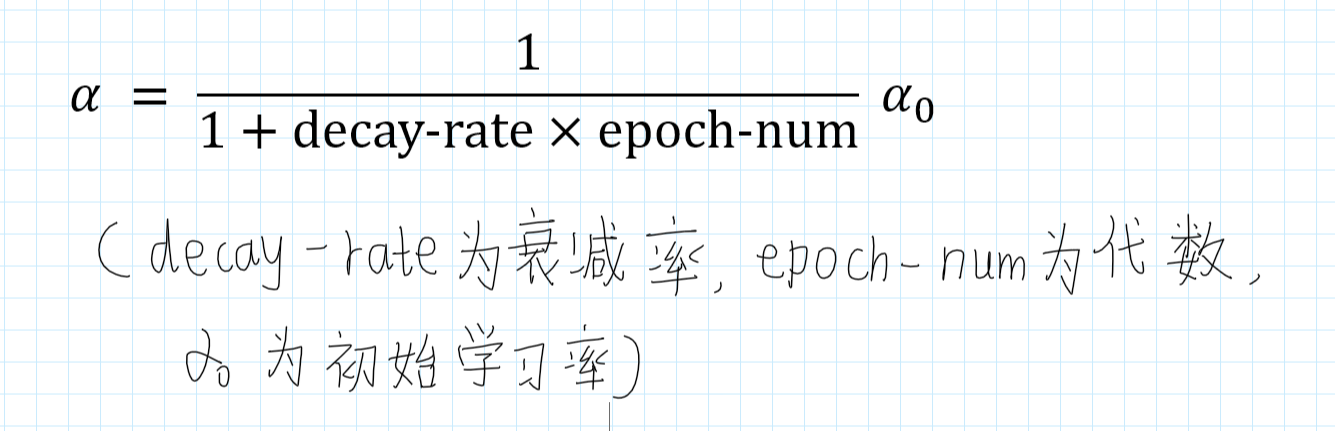 α = 1 / (1 + decay-rate × epoch-num) α₀
(decay-rate为衰减率, epoch-num为代数,
α₀为初始学习率)